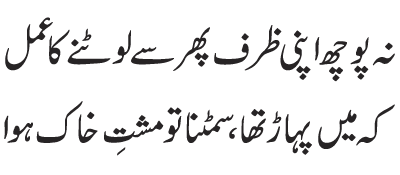 نہ پوچھ اپنی ظرف پھر سے لوٹنے کا عمل
کہ میں پہاڑ تھا، سمٹنا تو مشتِ خاک ہوا